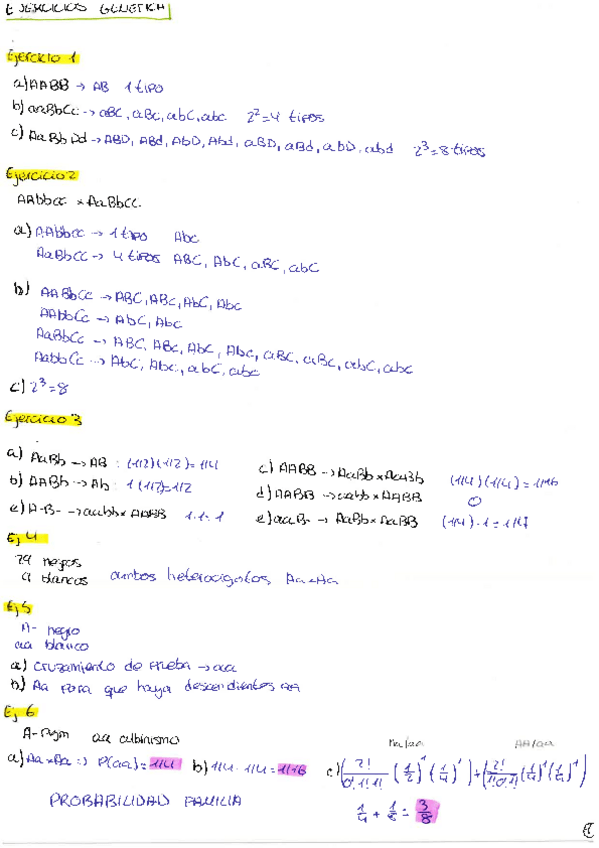 EJERCICIOS GENETICA
Ejercicio 1
a) AABB → AB 1 tipo
b) aaBbCc → aBC, aBc, abC, abc 2²=4 tipos
c) AaBbDd → ABD, ABd, AbD, Abd, aBD, aBd, abD, abd 2³=8 tipos
Ejercicio 2
AAbbcc × AaBbCc.
a) AAbbcc → 1 tipo Abc
AaBbCC → 4 tipos ABC, AbC, aBC, abC
b) AABbCc → ABC, ABc, AbC, Abc
AAbbCc → AbC, Abc
AaBbCc → ABC, ABc, AbC, Abc, aBC, aBc, abC, abc
AabbCc → AbC, Abc, abC, abc
c) 2³=8
Ejercicio 3
a) AaBb → AB : (1/2)(1/2)=1/4
b) AABb → Ab : 1(1/2)=1/2
c) AABB → AaBb × AaBb (1/4)(1/4)=1/16
d) AABB → aabb × AABB 0
e) A-B- → aabb × AABB 1·1=1
e) aaB- → AaBb × AaBB (1/4)·1=1/4
Ej 4
29 negros
9 blancos ambos heterocigotos, Aa×Aa
Ej 5
A- negro
aa blanco
a) Cruzamiento de prueba → aa
b) Aa para que haya descendientes aa
Ej 6
A- pigm aa albinismo
a) Aa×Aa => P(aa)=1/4 b) 1/4·1/4=1/16
Aa/aa AA/aa
c) (2!/0!1!1! (1/2)¹ (1/4)¹) + (2!/1!0!1! (1/4)¹(1/4)¹)
1/4 + 1/8 = 3/8
PROBABILIDAD FAMILIA
①